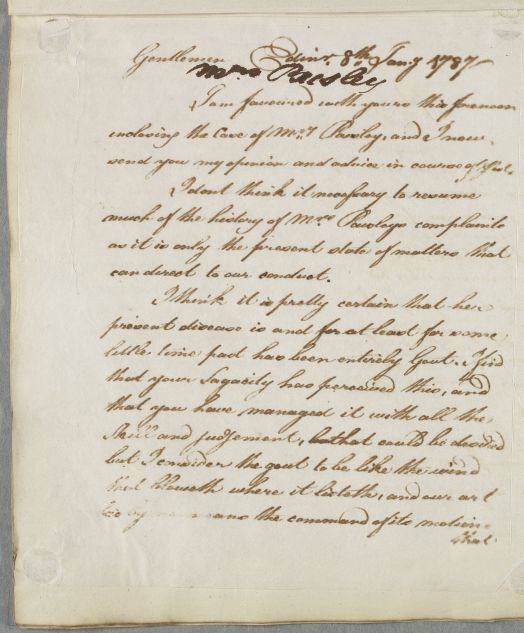 Gentlemen Edinr. 8th. Jany 1787
Mrs Pasley
I am favoured with yours this forenoon
inclosing the Case of Mrs. Pasley, and I now
send you my opinion and advice in course of Post.
I dont think it necessary to resume
much of the history of Mrs. Pasleys complaints
as it is only the present state of matters that
can direct to our conduct.
I think it is pretty certain that her
present disease is and for at least for some
little time past has been entirely Gout. I find
that your Sagacity has perceived this, and
that you have managed it with all the
Skill and judgement, that could be desired
but I consider the gout to be like the wind
that bloweth where it listeth, and our art
has by no means the command of its motions
that